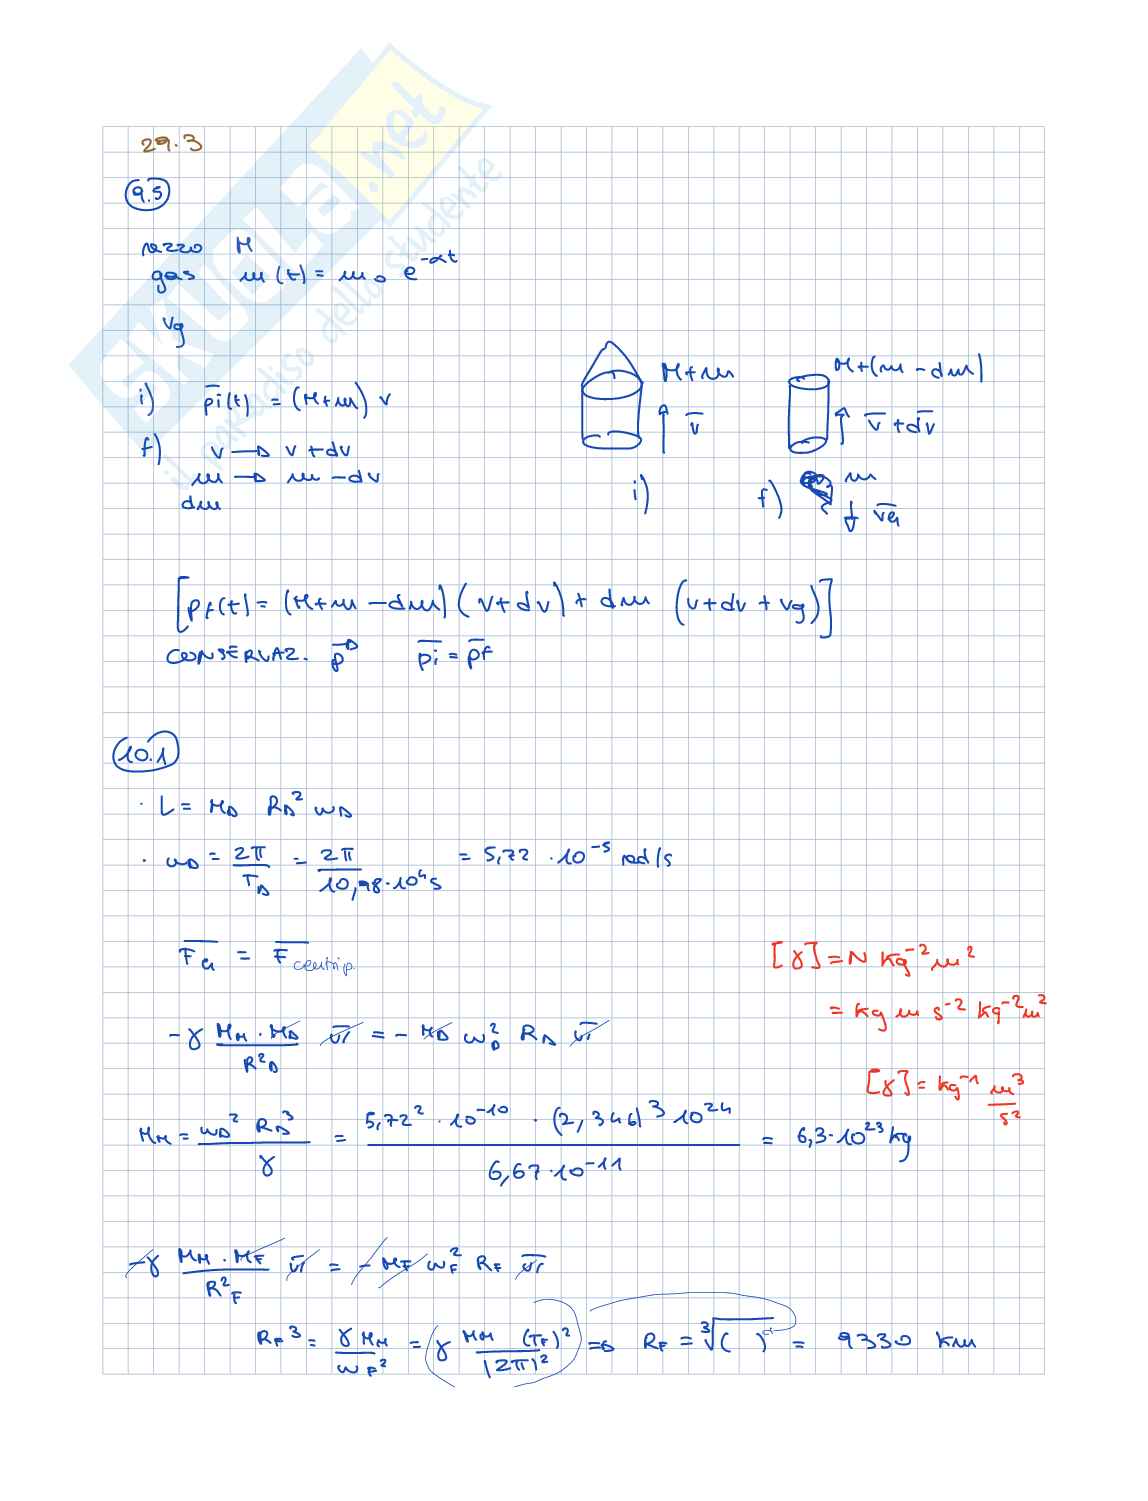 SKUOLA.net
il paradiso dello studente
29.3
9.5
razzo M
gas m(t) = m₀ e^{-αt}
vg
i) p̄i(t) = (M+m) v
f) v → v+dv
m → m-dv
dm
M+m
v̄
i)
M+(m-dm)
v̄+dv̄
m
f) v̄G
[pf(t) = (M+m-dm)(v+dv) + dm (v+dv+vg)]
CONSERVAZ. p⃗ p̄i = p̄f
10.1
· L = M_D R_D² ω_D
· ω_D = 2π/T_D = 2π/10,98·10⁴s = 5,72 · 10⁻⁵ rad/s
F̄G = F̄centrip.
[γ] = N kg⁻² m²
= kg m s⁻² kg⁻² m²
-γ M_M·M_D/R²_D ūr = - M_D ω_D² R_D ūr
[γ] = kg⁻¹ m³/s²
M_M = ω_D² R_D³/γ = 5,72² · 10⁻¹⁰ · (2,346)³ 10²⁴/6,67·10⁻¹¹ = 6,3·10²³ kg
-γ M_M·M_F/R²_F ūr = - M_F ω_F² R_F ūr
R_F³ = γ M_M/ω_F² = (γ M_M (T_F)²/(2π)²) ⇒ R_F = ³√( ) = 9330 km